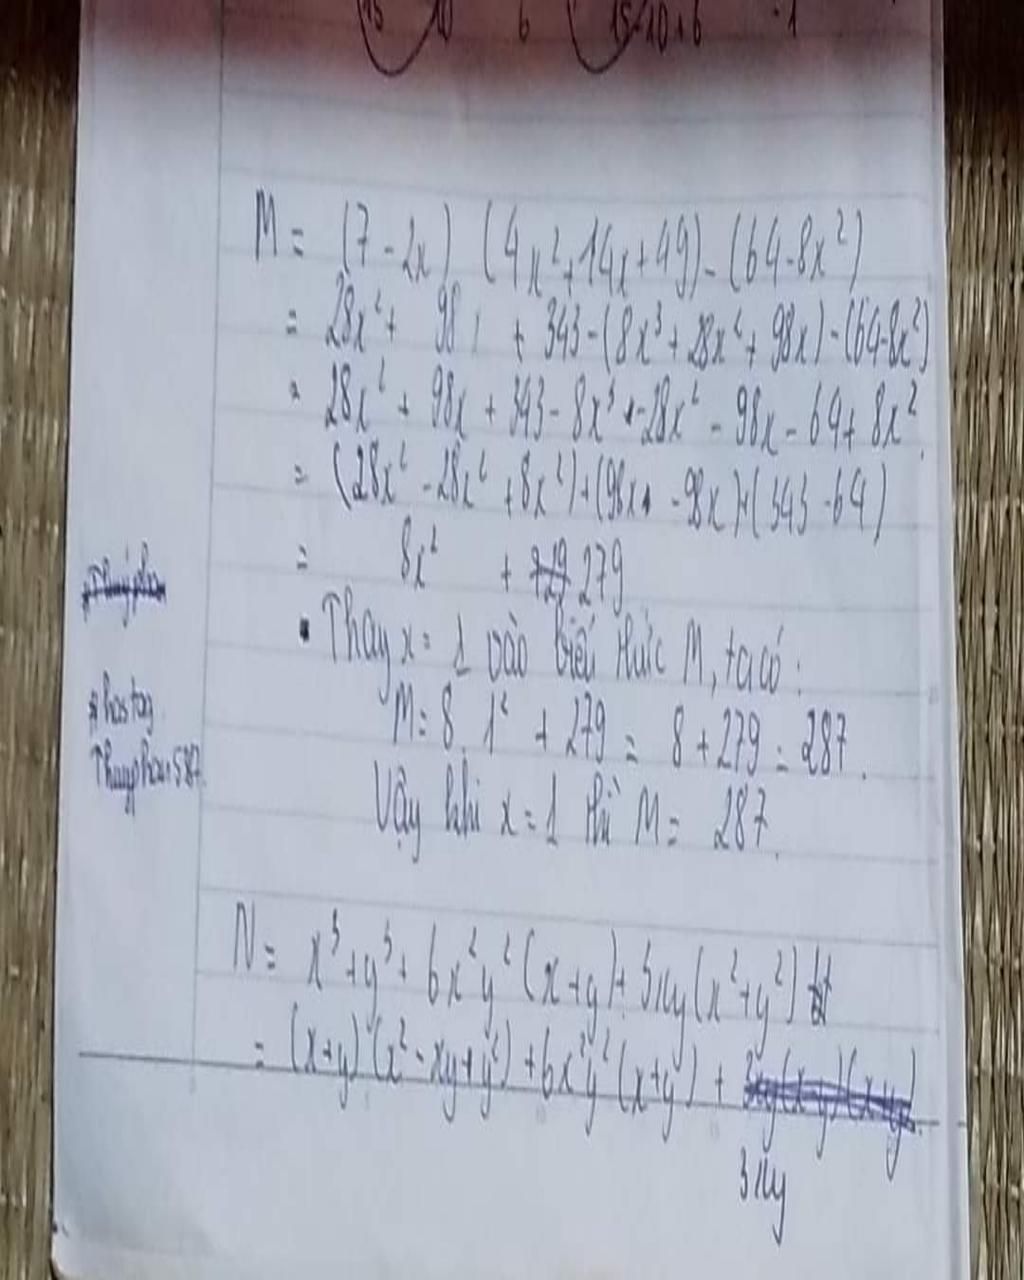 15 10 6 15-10+6 -1
M = (7 - 2x) (4x²+14x+49) - (64-8x²)
= 28x² + 98x + 343 - (8x³ + 28x² + 98x) - (64-8x²)
= 28x² + 98x + 343 - 8x³ - 28x² - 98x - 64 + 8x².
= (28x² - 28x² + 8x²) + (98x - 98x) + (343 - 64)
= 8x² + 279
Thay x = 1 vào biểu thức M, ta có:
M = 8.1² + 279 = 8 + 279 = 287.
Vậy khi x = 1 thì M = 287.
#hastag
Thuyphan587.
N = x³ + y³ + 6x²y² (x+y) + 3xy (x²+y²)
= (x+y) (x² - xy + y²) + 6x²y² (x+y) +
3xy